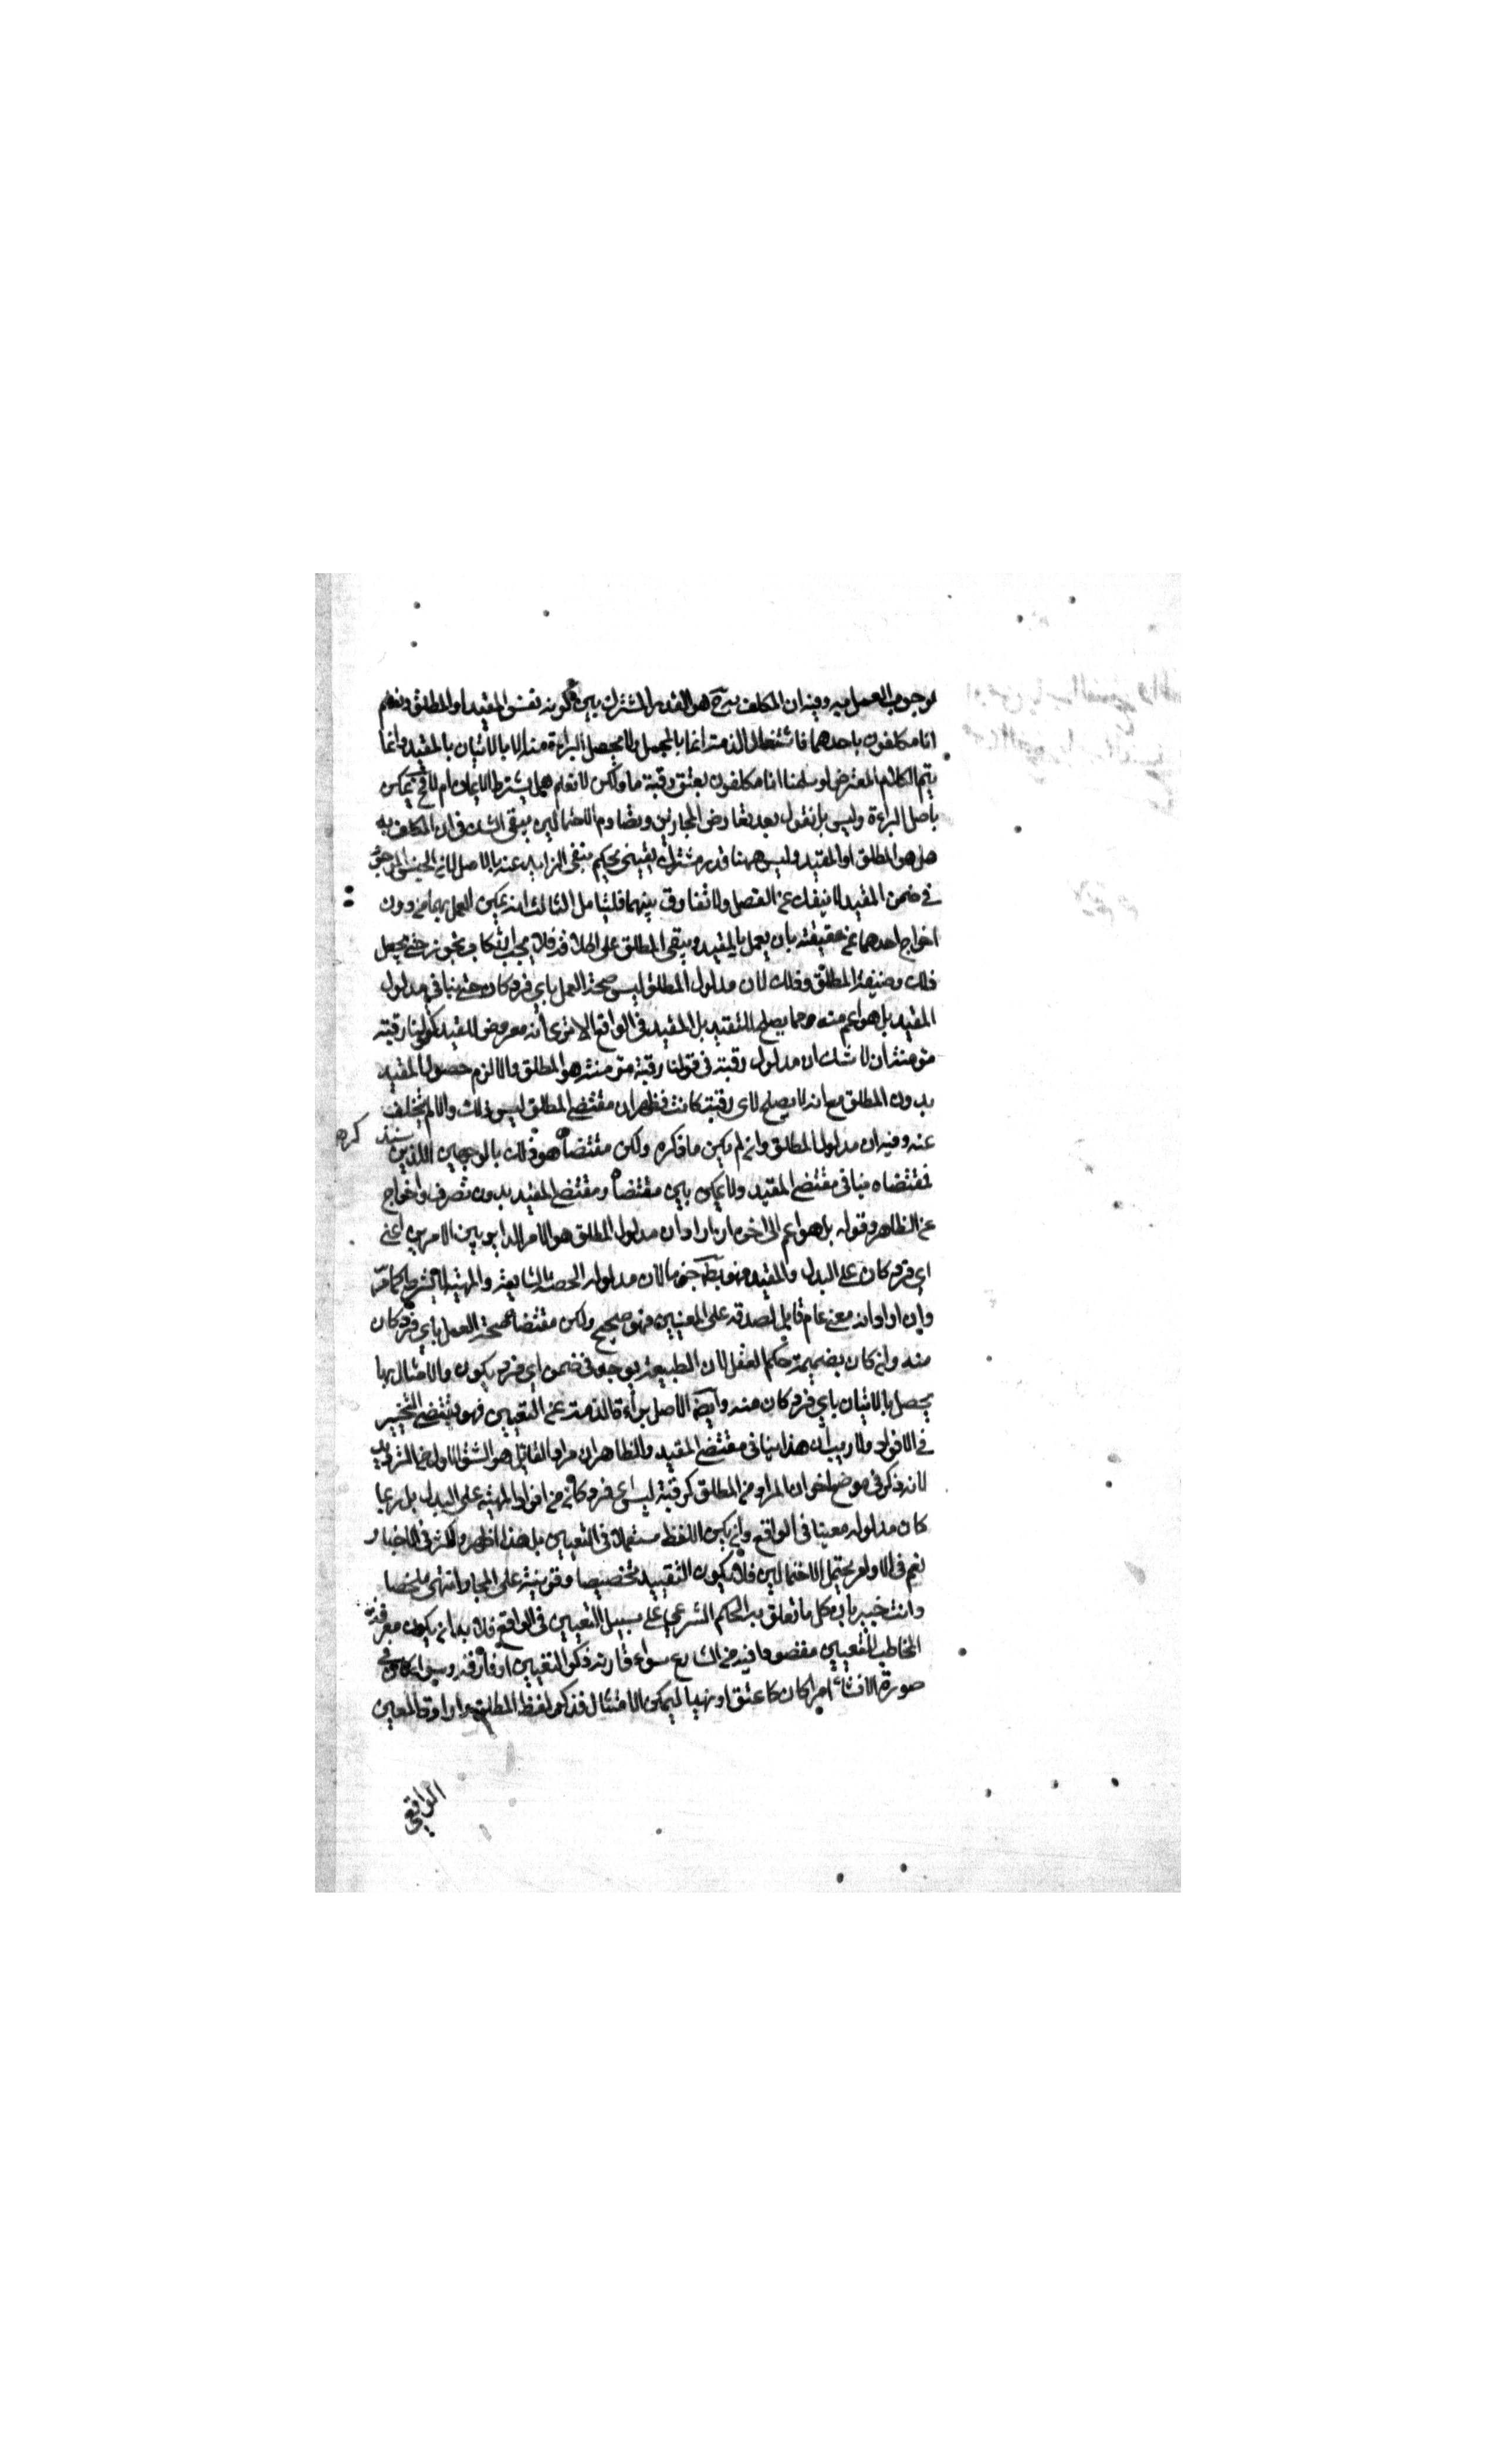 لوجوب العمل به وفيه ان المكلف به ح هو القدر المشترك بين كونه نفس المقيد او المطلق ونعلم
انا مكلفون باحدهما فاشتغال الذمة انما بالمجمل ولا يحصل البراءة منه الا بالاتيان بالمقيد وانما
يتم الكلام المعترض لو سلمنا انا مكلفون بعتق رقبة ما ولكن لا نعلم هل يشترط الايمان ام لا فح يمكن
باصل البراءة وليس بل نقول بعد تعارض المجازين وتصادم الاحتمالين يبقى الشك في ان المكلف به
هل هو المطلق او المقيد وليس ههنا قدر مشترك يقيني يحكم بنفي الزايد عنه بالاصل لان الجنس الموجود
في ضمن المقيد لا ينفك عن الفصل ولا تفارق بينهما فليتامل الثالث انه يمكن العمل بهما من دون
اخراج احدهما عن حقيقته بان يعمل بالمقيد ويبقى المطلق على اطلاقه فلا يجب ارتكاب تجوز حتى يجعل
ذلك وضيفة المطلق وذلك لان مدلول المطلق ليس صحة العمل باي فرد كان حتى ينافي مدلول
المقيد بل هو اعم منه ومما يصلح للتقييد بل المقيد في الواقع الا ترى انه معروض للقيد كقولنا رقبة
مؤمنة ان لا شك ان مدلول رقبة في قولنا رقبة مؤمنة هو المطلق والا لزم حصول المقيد
بدون المطلق مع انه لا يصلح لاي رقبة كانت فظهر ان مقتضى المطلق ليس ذلك والا لم يتخلف
عنه وفيه ان مدلول المطلق وان لم يكن ما ذكره ولكن مقتضاه هو ذلك بالوجهين اللذين
فمقتضاه ينافي مقتضى المقيد ولا يمكن بين مقتضاه ومقتضى المقيد بدون تصرف واخراج
عن الظاهر وقوله بل هو اعم الى اخره ان اراد ان مدلول المطلق هو الامر الداير بين الامرين اعني
اي فرد كان على البدل والمقيد فهو بط جزما لان مدلوله الحصة الشايعة والمهية لا بشرط كما مر
وان اراد انه معنى عام قابل لصدقه على المعنيين فهو صحيح ولكن مقتضاه صحة العمل باي فرد كان
منه وان كان بضميمة حكم العقل لان الطبيعة يوجد في ضمن اي فرد يكون والامتثال بها
يحصل بالاتيان باي فرد كان منه وايضا الاصل براءة الذمة عن التعيين فهو يقتضي التخيير
في الافراد ولا ريب ان هذا ينافي مقتضى المقيد والظاهر ان مراد القايل هو الشق الاول من الترديد
لانه ذكر في موضع اخر ان المراد من المطلق كرقبة ليس اي فرد كان من افراد المهية على البدل بل ربما
كان مدلوله معينا في الواقع وان لم يكن اللفظ مستعملا في التعيين بل هذا اظهر واكثر في الاخبار
نعم في الاوامر يحتمل الاحتمالين فلا يكون التقييد تخصيصا وقرينة على المجاز انتهى ملخصا
وانت خبير بان كل ما تعلق به الحكم الشرعي على سبيل التعيين في الواقع فلا بد ان يكون معرفة
المخاطب للتعيين مقصودا فيه من الشارع سواء قارنه ذكر التعيين او فارقه وسواء كان في
صورة الانشاء امرا كان كاعتق او نهيا ليمكن الامتثال فذكر لفظ المطلق وارادة المعين
الواقعي